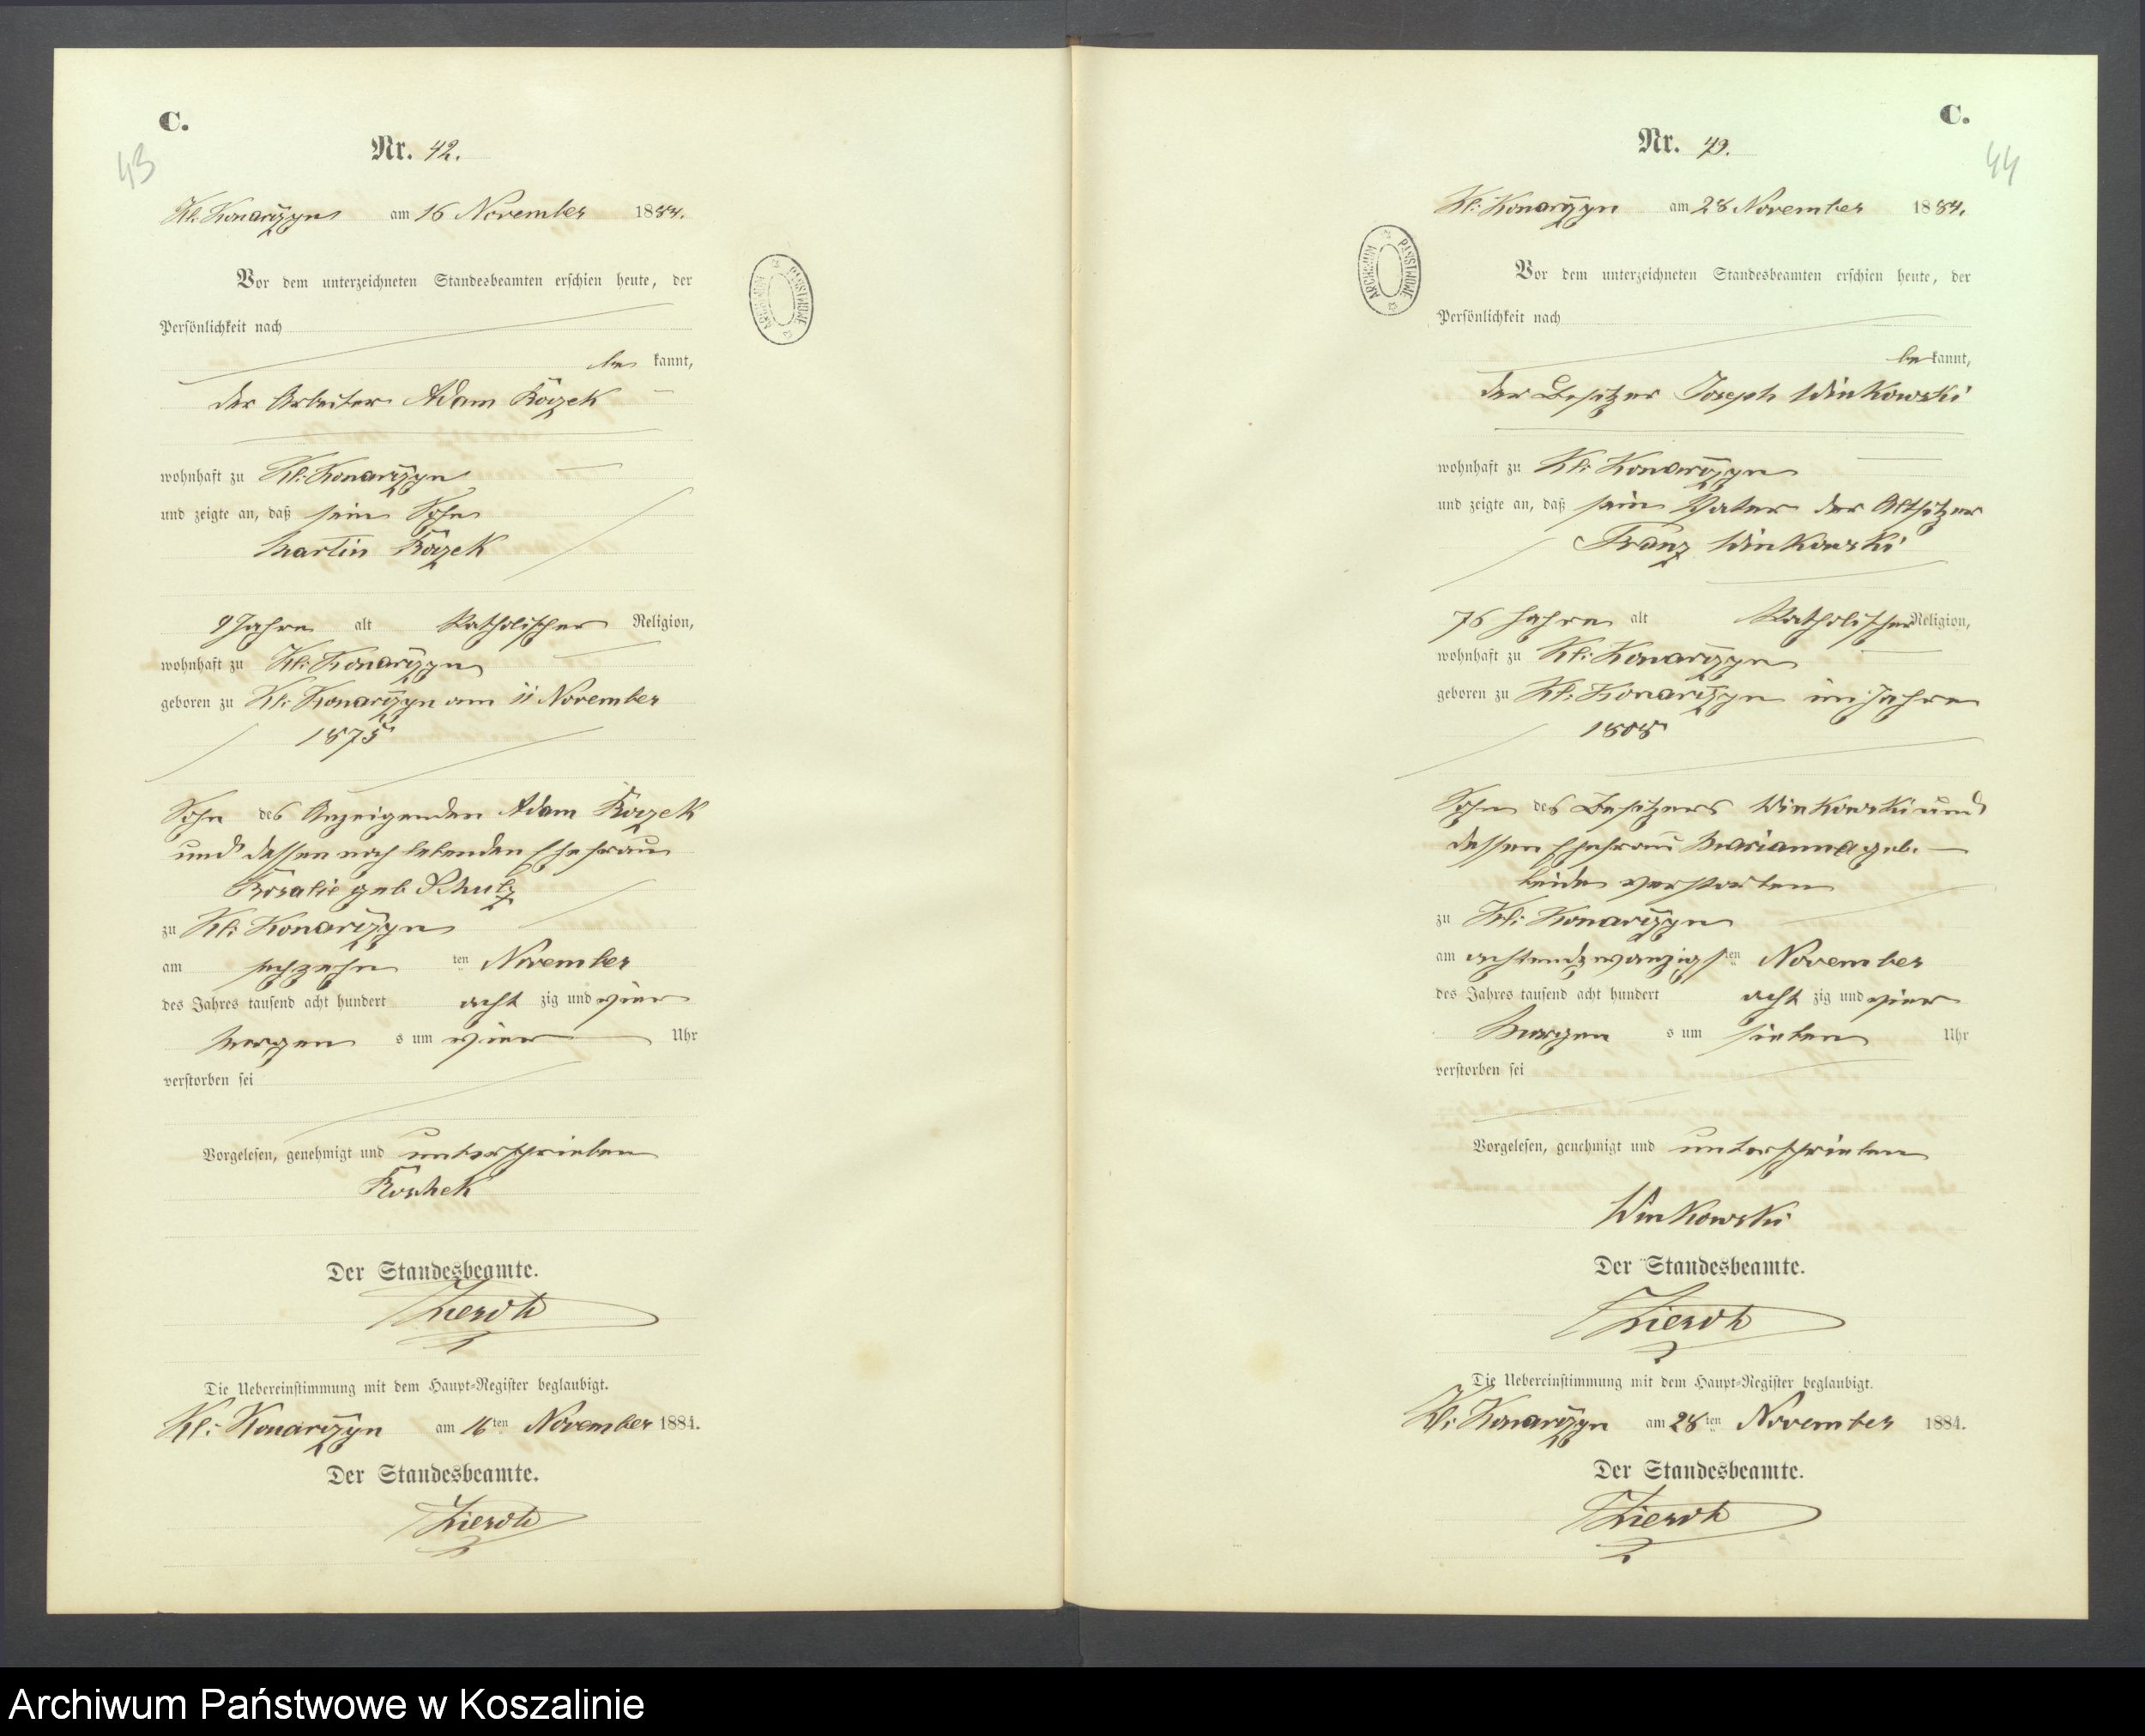 C.
43
Nr. 42.
Kl: Konarczyn am 16 November 1884.
Vor dem unterzeichneten Standesbeamten erschien heute, der
Persönlichkeit nach
be kannt,
der Arbeiter Adam
wohnhaft zu Kl: Konarczyn
und zeigte an, daß sein Sohn
Martin
9 Jahre alt Katholischer Religion,
wohnhaft zu Kl: Konarczyn
geboren zu Kl: Konarczyn am 11 November
1875
Sohn des Anzeigenden Adam
und dessen noch lebenden Ehefrau
Rosalie geb Schulz
zu Kl: Konarczyn
am sechzehn ten November
des Jahres tausend acht hundert acht zig und vier
Morgen s um vier Uhr
verstorben sei
Vorgelesen, genehmigt und unterschrieben
Roschek
Der Standesbeamte.
Die Uebereinstimmung mit dem Haupt-Register beglaubigt.
Kl: Konarczyn am 16 ten November 1884.
Der Standesbeamte.
ARCHIWUM PAŃSTWOWE
C.
44
Nr. 43.
Kl: Konarczyn am 28 November 1884.
Vor dem unterzeichneten Standesbeamten erschien heute, der
Persönlichkeit nach
be kannt,
der Besitzer Joseph Winkowski
wohnhaft zu Kl: Konarczyn
und zeigte an, daß sein Vater der Altsitzer
Franz Winkowski
76 Jahre alt Katholischer Religion,
wohnhaft zu Kl: Konarczyn
geboren zu Kl: Konarczyn im Jahre
1808
Sohn des Besitzers Winkowski und
dessen Ehefrau Marianna geb. —
beide verstorben
zu Kl: Konarczyn
am achtundzwanzigs ten November
des Jahres tausend acht hundert acht zig und vier
Morgen s um sieben Uhr
verstorben sei
Vorgelesen, genehmigt und unterschrieben
Winkowski
Der Standesbeamte.
Die Uebereinstimmung mit dem Haupt-Register beglaubigt.
Kl: Konarczyn am 28 ten November 1884.
Der Standesbeamte.
ARCHIWUM PAŃSTWOWE
Archiwum Państwowe w Koszalinie